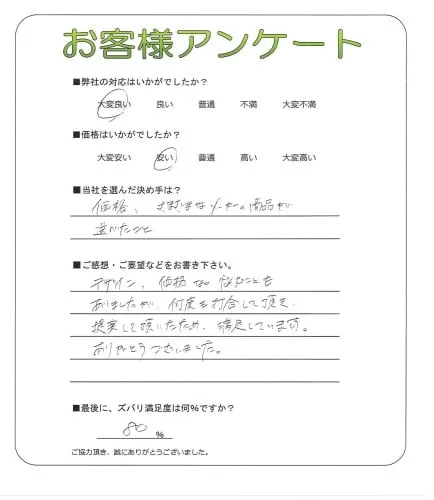 お客様アンケート
■弊社の対応はいかがでしたか?
大変良い 良い 普通 不満 大変不満
■価格はいかがでしたか?
大変安い 安い 普通 高い 大変高い
■当社を選んだ決め手は?
価格、大好きなメーカーの商品が
■ご感想・ご要望などをお書き下さい。
デザイン、価格など なやむことも
ありましたが、何度も打合して頂き、
提案して頂いたため、満足しています。
ありがとうございました。
■最後に、ズバリ満足度は何%ですか?
80 %
ご協力頂き、誠にありがとうございました。